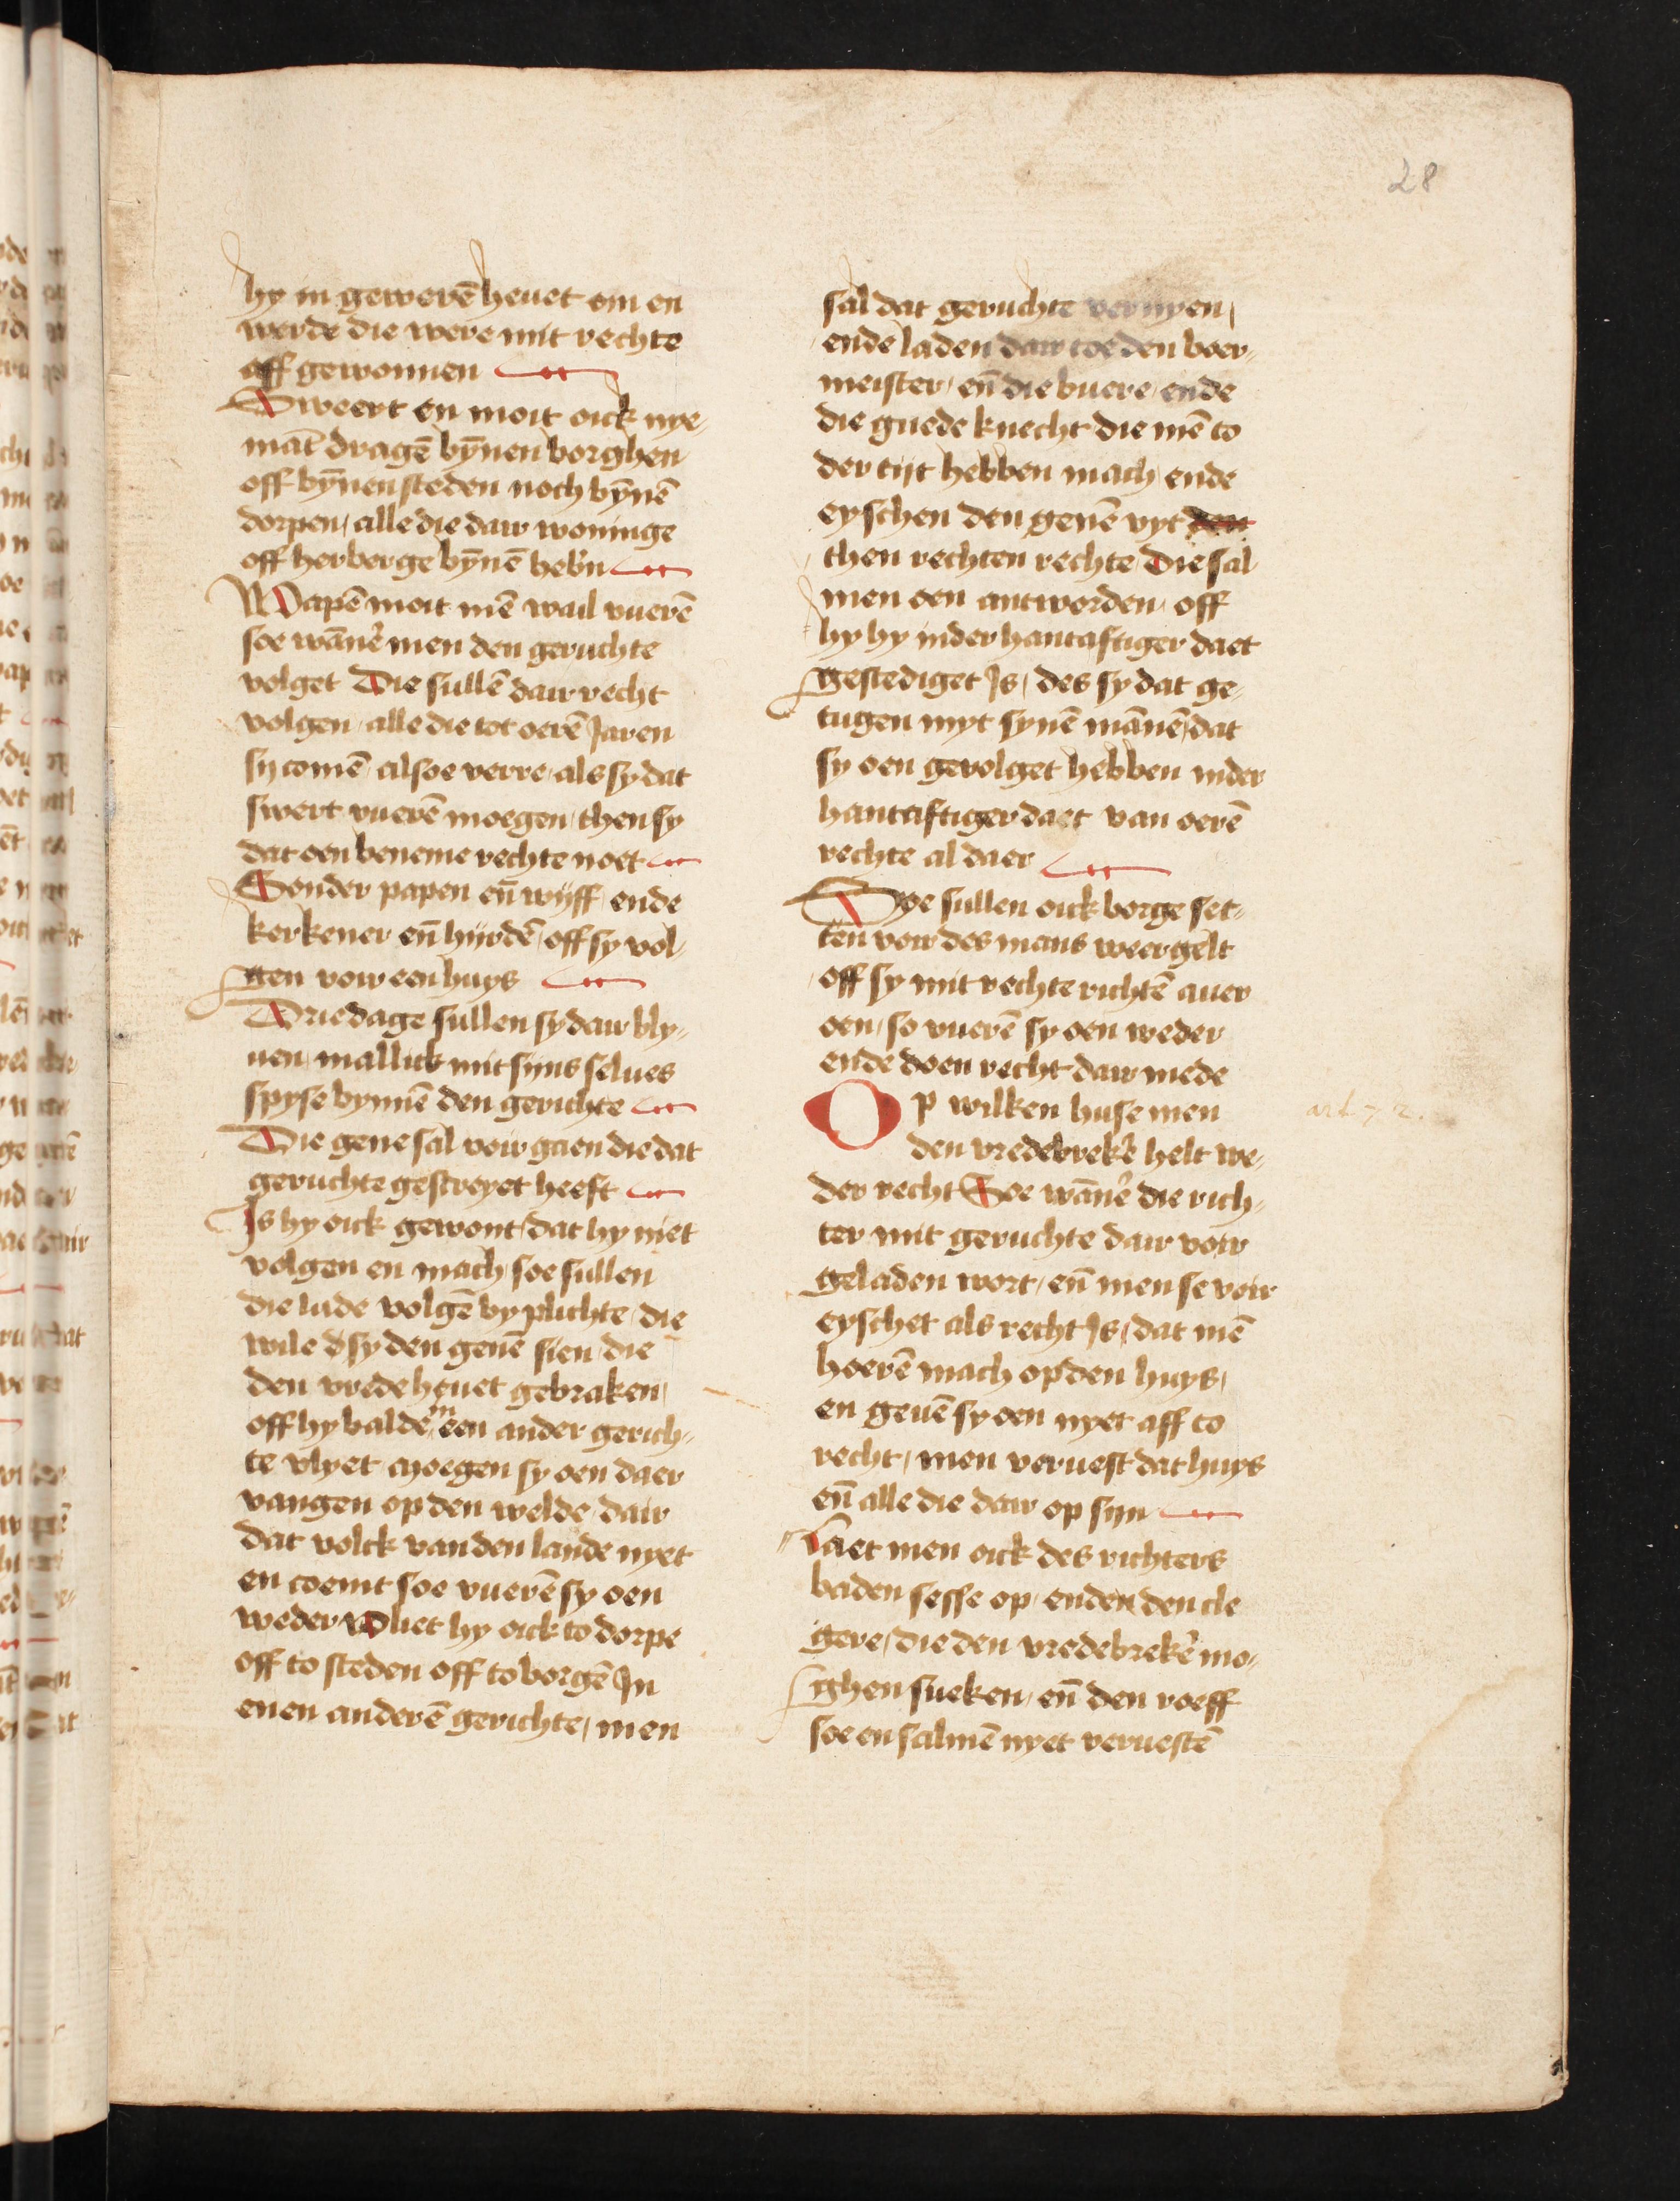 28
hy in geweren̄ heuet om en
werde die were mit rechte
aff gewonnen
Sweert en moit oick nye-
māt dragē bȳnen borghen
off bȳnen steden noch bȳnē
dorpen / alle die dair woninge
off herberge bȳnē heb'n
Wapē moit mē wail vuerē
soe wānē' men den geruchte
volget Die sullē dair recht
volgen / alle die tot oerē Jaren
sij comē / alsoe verre / als sy dat
swert vuerē moegen / then sy
dat oen beneme rechte noet
Sonder papen en̄ wijff / ende
kerkener en̄ hijrdē / off sy vol-
gen voir een huys
Drie dage sullen sy dair bly-
uen / mallick mit sijns selues
spyse bynnē den gerichte
Die gene sal voir gaen die dat
geruchte gescreyet heeft
Is hy oick gewont / dat hy niet
volgen en mach / soe sullen
die lude volgē by plichte / die
wile dsy den genē sien / die
den vrede heuet gebraken /
off hy balde in een ander gerich-
te vlyet moegen sy oen daer
vangen op den velde / dair
dat volck van den lande nyet
en coemt soe vuerē sy oen
weder Vliet hy oick to dorpe
off to steden off to borgē In
enen anderē gerichte / men
sal dat geruchte vernyen /
ende laden dair toe den boer-
meister / en̄ die buere / ende
die guede knecht die mē to
der tijt hebben mach / ende
eyschen den genē vyt den
then rechten rechte / Die sal
men oen antworden / off
hy hy inder hantaftiger daet
gestediget Is / des sy dat ge-
tugen myt synē mānē / dat
sy oen gevolget hebben inder
hantaftiger daet van oerē
rechte al daer
Soe sullen oick borge set-
ten voir des mans weergelt
off sy mit rechte richtē auer
oen / so vuerē sy oen weder
ende doen recht dair mede
Op wilken huse men
den vredebrekē' helt we-
der recht Soe wānē' die rich-
ter mit geruchte dair voir
geladen wort / en̄ men se voir
eyschet als recht Is / dat mē
hoerē mach op den huys /
en geuē sy oen nyet aff to
recht / men veruest dat huys
en̄ alle die dair op sijn
Laet men oick des richters
baden sesse op / enden den cle
gere / die den vredebrekē' mo-
ghen sueken / en̄ den roeff
soe en salmē nyet veruestē
art. 72.